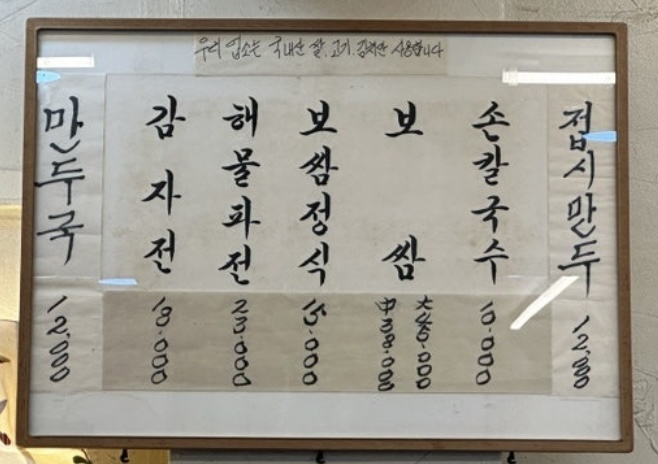 우리 업소는 국내산 쌀, 고기, 김치만 사용합니다
만두국 12,000
감자전 18,000
해물파전 23,000
보쌈정식 15,000
보쌈 大 45,000 中 38,000
손칼국수 10,000
접시만두 12,000